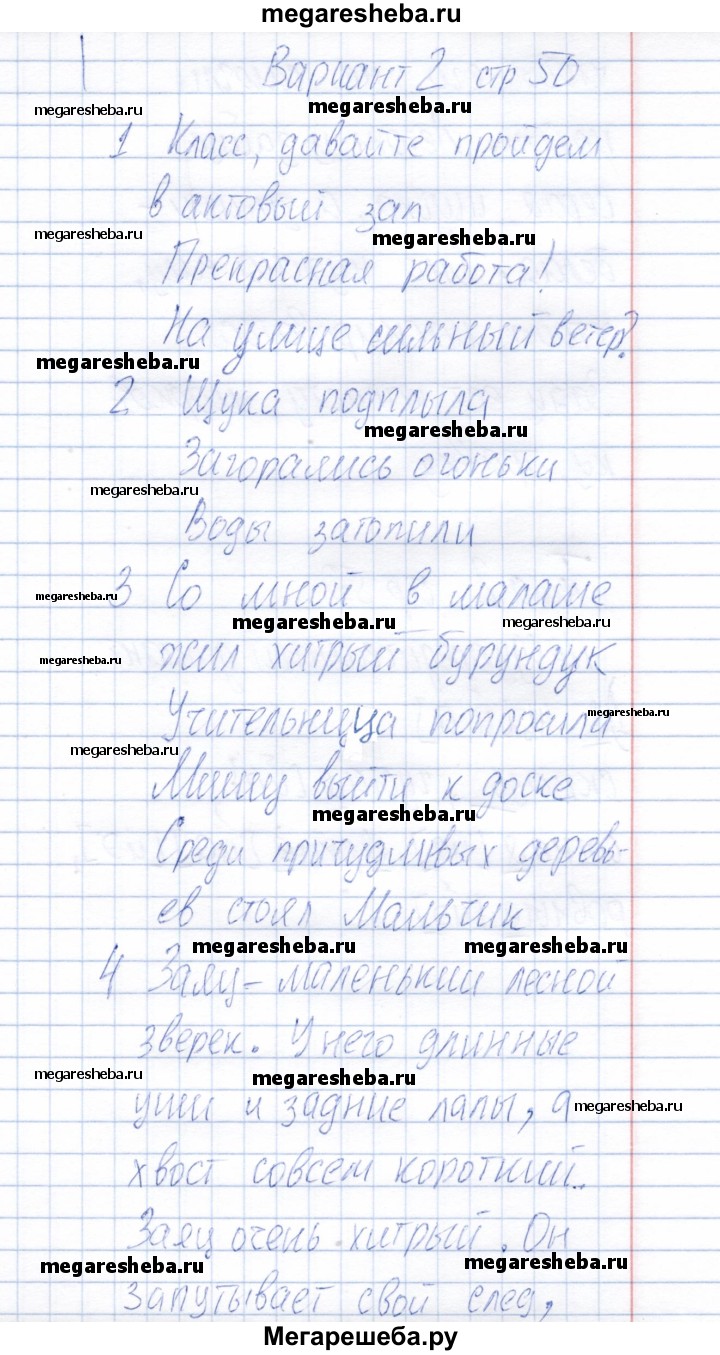 megaresheba.ru
Вариант 2 стр 50
megaresheba.ru
megaresheba.ru
1 Класс, давайте пройдем
в актовый зал
megaresheba.ru
megaresheba.ru
Прекрасная работа!
На улице сильный ветер?
megaresheba.ru
2 Щука подплыла
megaresheba.ru
Загорались огоньки
megaresheba.ru
Воды затопили
megaresheba.ru
3 Со мной в шалаше
megaresheba.ru
megaresheba.ru
megaresheba.ru
жил хитрый бурундук
megaresheba.ru
Учительница попросила
megaresheba.ru
Мишу выйти к доске
megaresheba.ru
Среди причудливых деревь-
ев стоял Мальчик
megaresheba.ru
megaresheba.ru
4 Заяц - маленький лесной
зверек. У него длинные
megaresheba.ru
megaresheba.ru
уши и задние лапы, а
megaresheba.ru
хвост совсем короткий.
Заяц очень хитрый. Он
megaresheba.ru
megaresheba.ru
запутывает свой след,
Мегарешеба.ру